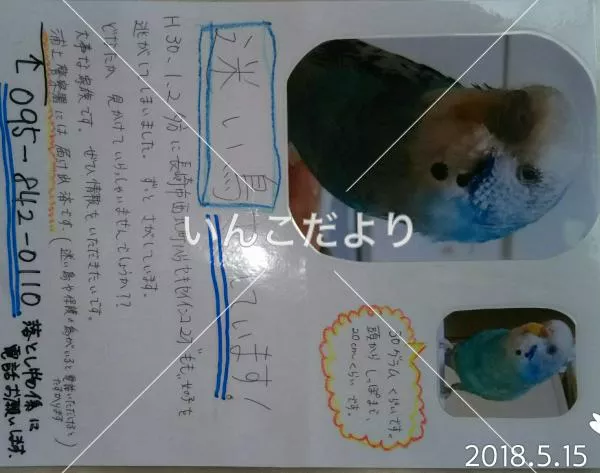 迷い鳥
さがしています!
H30、1.2 夕方に長崎市西
逃がしてしまいました。ずっとさがしています。
どなたか 見かけていらっしゃいませんでしょうか??
大事な家族です。ぜひ情報をいただきたいです。
浦上警察署には届け出済です。
↑095-842-0110 落とし物係に
電話お願いします。
30グラムくらいです。
頭からしっぽまで、
20cmくらいです。
いんこだより
2018.5.15